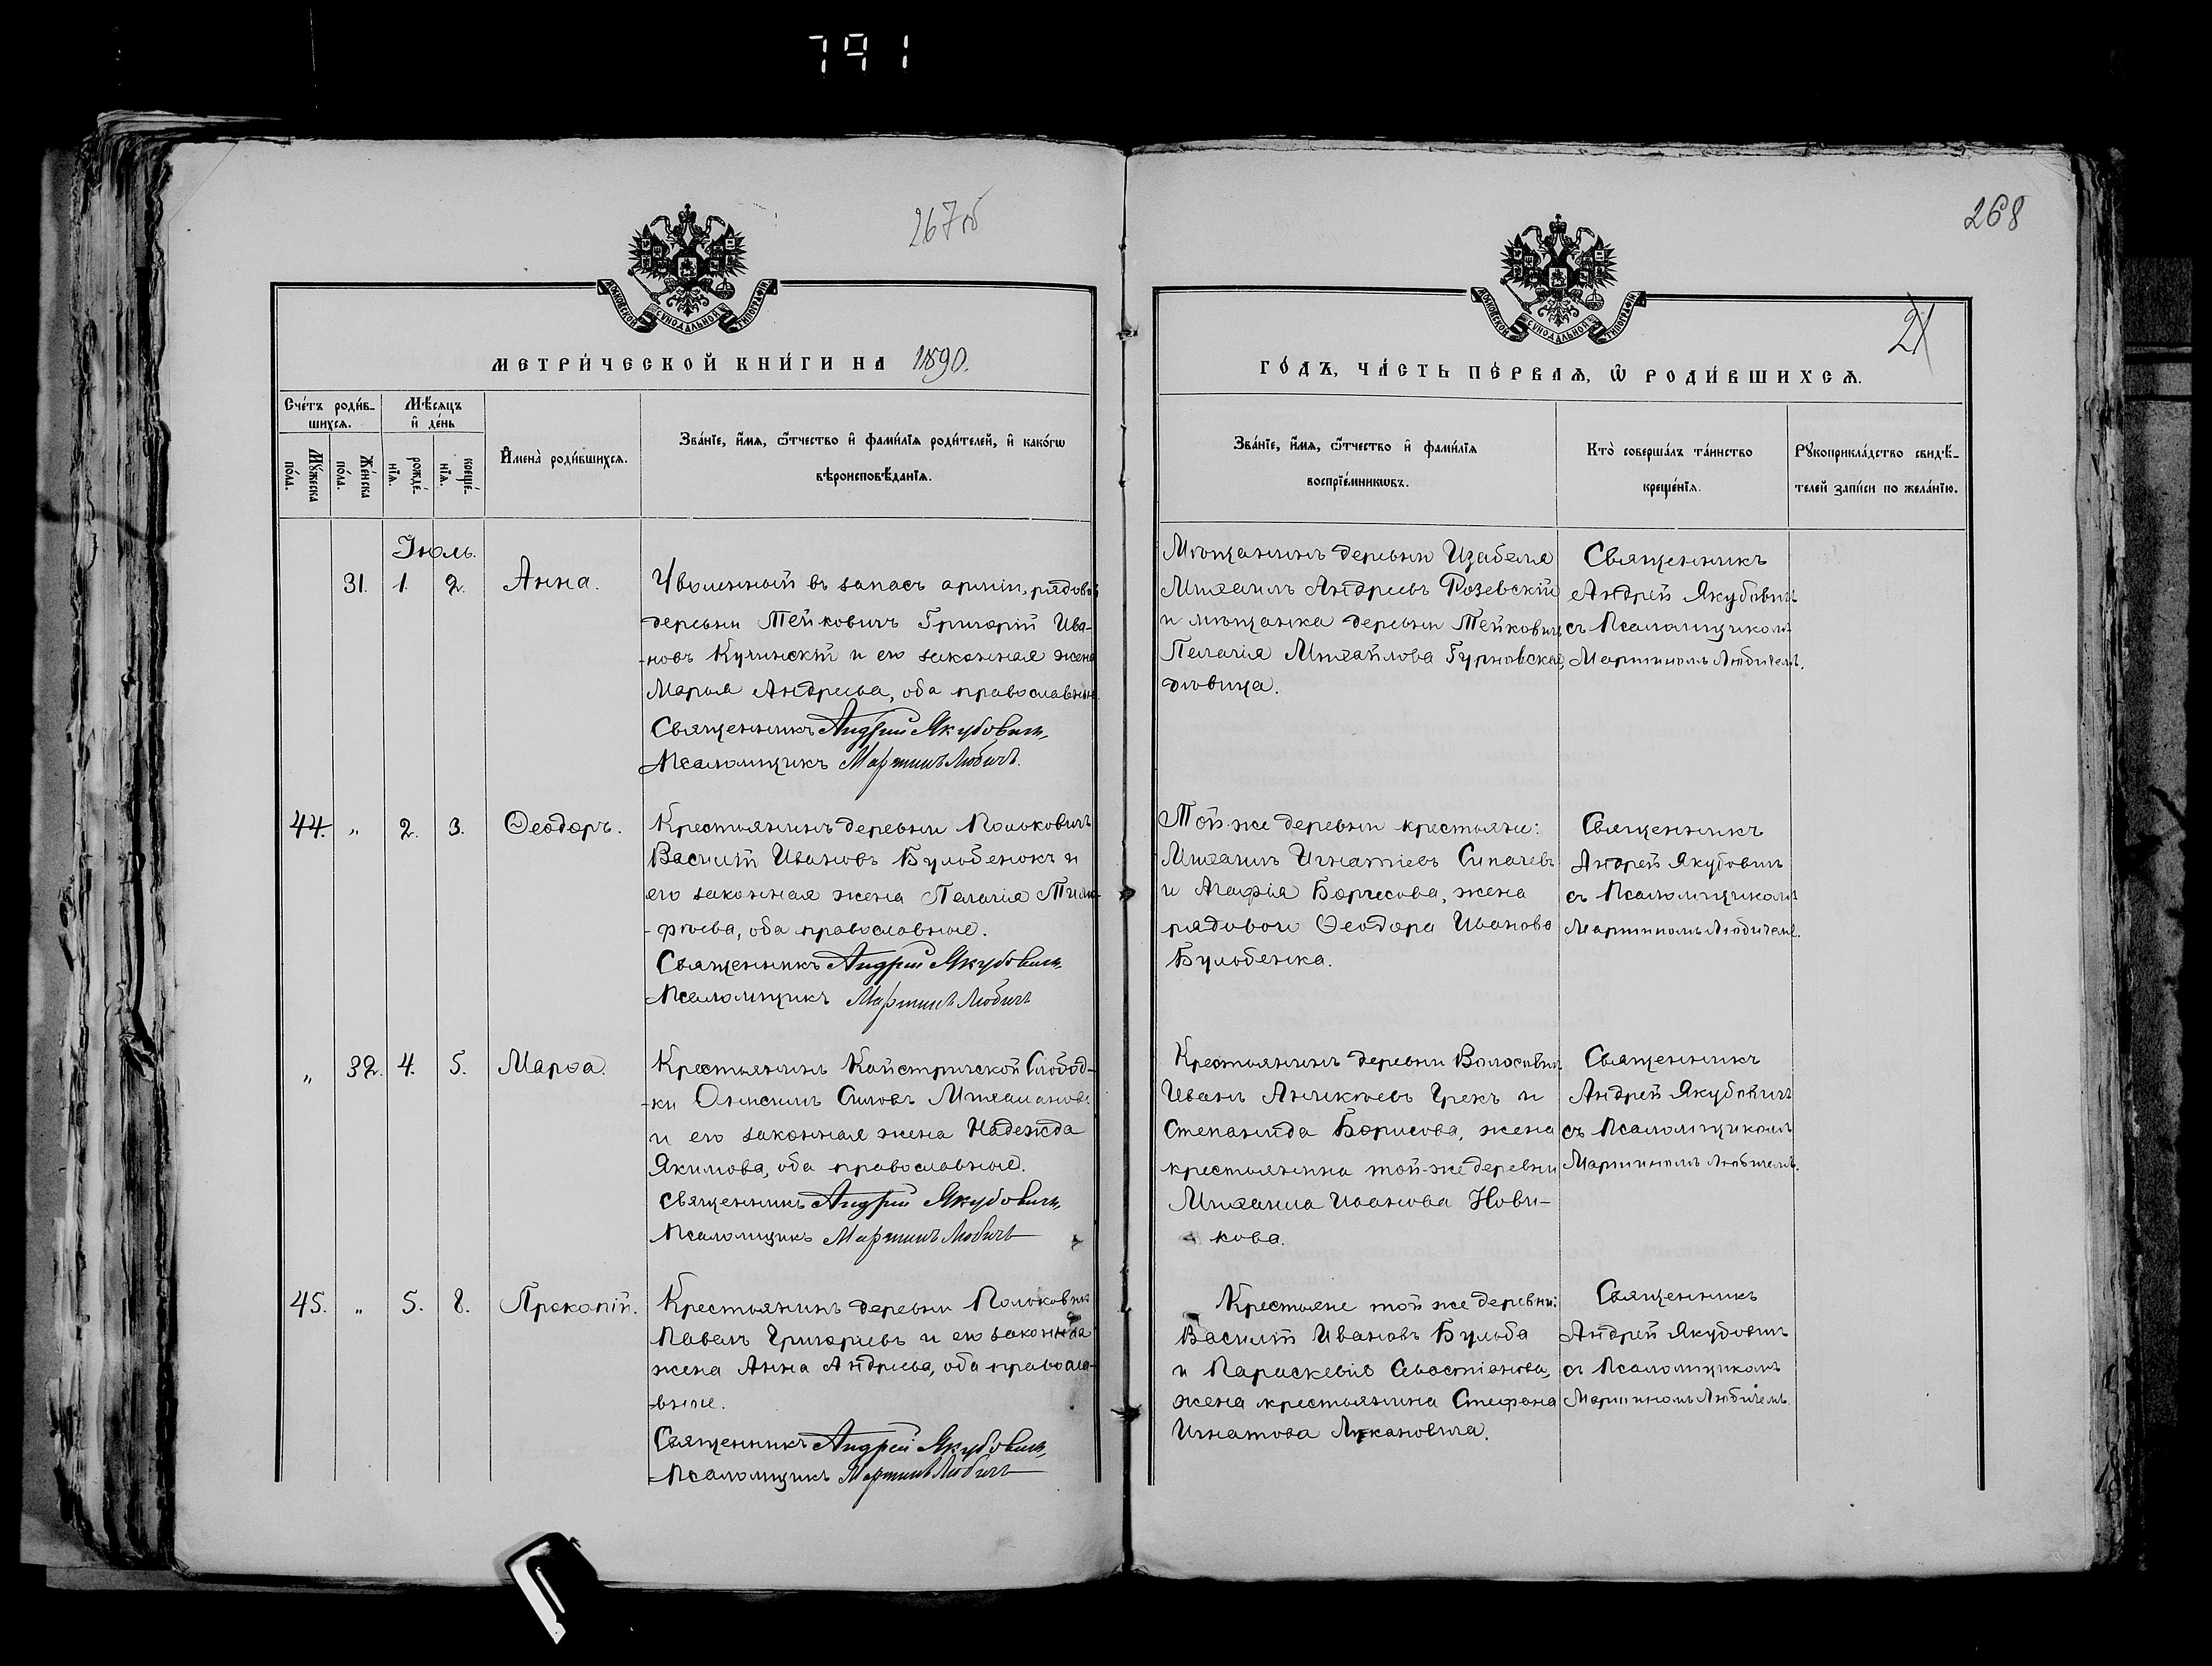 791
267об
268
МОСКОВСКОЙ СѴНОДАЛЬНОЙ ТИПОГРАФІИ
МОСКОВСКОЙ СѴНОДАЛЬНОЙ ТИПОГРАФІИ
21
МЕТРИ́ЧЕСКОЙ КНИ́ГИ НА 1890.
ГО́ДЪ, ЧА́СТЬ ПЕ́РВАѦ, Ѡ҆ РОДИ́ВШИХСѦ.
Сче́тъ роди́в-
шихсѧ.
Мꙋ́жеска
по́ла.
Же́нска
по́ла.
Мѣ́сѧцъ
и҆ де́нь
рожде́-
нїѧ.
креще́-
нїѧ.
И҆мена̀ роди́вшихсѧ.
Зва́нїе, и҆́мѧ, ѻ҆́тчество и҆ фами́лїѧ роди́телей, и҆ како́гѡ
вѣроисповѣ́данїѧ.
Зва́нїе, и҆́мѧ, ѻ҆́тчество и҆ фами́лїѧ
воспрїе́мникѡвъ.
Кто̀ соверша́лъ та́инство
креще́нїѧ.
Рꙋкоприкла́дство свидѣ́-
телей за́писи по жела́нїю.
Іюль.
31. 1. 2. Анна.
Уволенный въ запасъ арміи, рядовой
деревни Тейковичъ Григорій Ива-
-новъ Кучинскій и его законная жена
Марья Андреева, оба православные.
Священникъ Андрей Якубовичъ
Псаломщикъ Мартинъ Любичъ.
Мѣщанинъ деревни Изабеля
Михаилъ Андреевъ Розевскій
и мѣщанка деревни Тейковичъ
Пелагія Михайлова Гурновская,
дѣвица.
Священникъ
Андрей Якубовичъ
съ Псаломщикомъ
Мартиномъ Любичемъ.
44. „ 2. 3. Ѳеодоръ.
Крестьянинъ деревни Польковичъ
Василій Ивановъ Бульбенокъ и
его законная жена Пелагія Тимо-
-фѣева, оба православные.
Священникъ Андрей Якубовичъ
Псаломщикъ Мартинъ Любичъ
Той-же деревни крестьяне:
Михаилъ Игнатіевъ Сипачевъ
и Агафія Борисова, жена
рядового Ѳеодора Иванова
Бульбенка.
Священникъ
Андрей Якубовичъ
съ Псаломщикомъ
Мартиномъ Любичемъ.
„ 32. 4. 5. Марѳа.
Крестьянинъ Кайстричской Слобод-
-ки Онисимъ Силовъ Михалановъ
и его законная жена Надежда
Якимова, оба православные.
Священникъ Андрей Якубовичъ
Псаломщикъ Мартинъ Любичъ
Крестьянинъ деревни Волосовичъ
Иванъ Аникѣевъ Грекъ и
Степанида Борисова, жена
крестьянина той-же деревни
Михаила Иванова Нови-
кова.
Священникъ
Андрей Якубовичъ
съ Псаломщикомъ
Мартиномъ Любичемъ.
45. „ 5. 8. Прокопій.
Крестьянинъ деревни Польковичъ
Павелъ Григоріевъ и его законная
жена Анна Андреева, оба правосла-
-вные.
Священникъ Андрей Якубовичъ
Псаломщикъ Мартинъ Любичъ
Крестьяне той же деревни:
Василій Ивановъ Бульба
и Параскевія Севастіанова,
жена крестьянина Стефана
Игнатова Лукановича.
Священникъ
Андрей Якубовичъ
съ Псаломщикомъ
Мартиномъ Любичемъ.